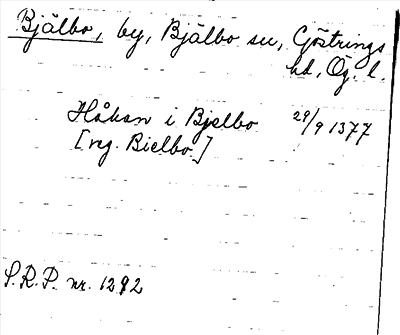 Bjälbo, by, Bjälbo sn, Göstrings
hd, Ög. l.
Håkan i Bjelbo 29/9 1377
[rg. Bielbo.]
S.R.P. nr. 1292